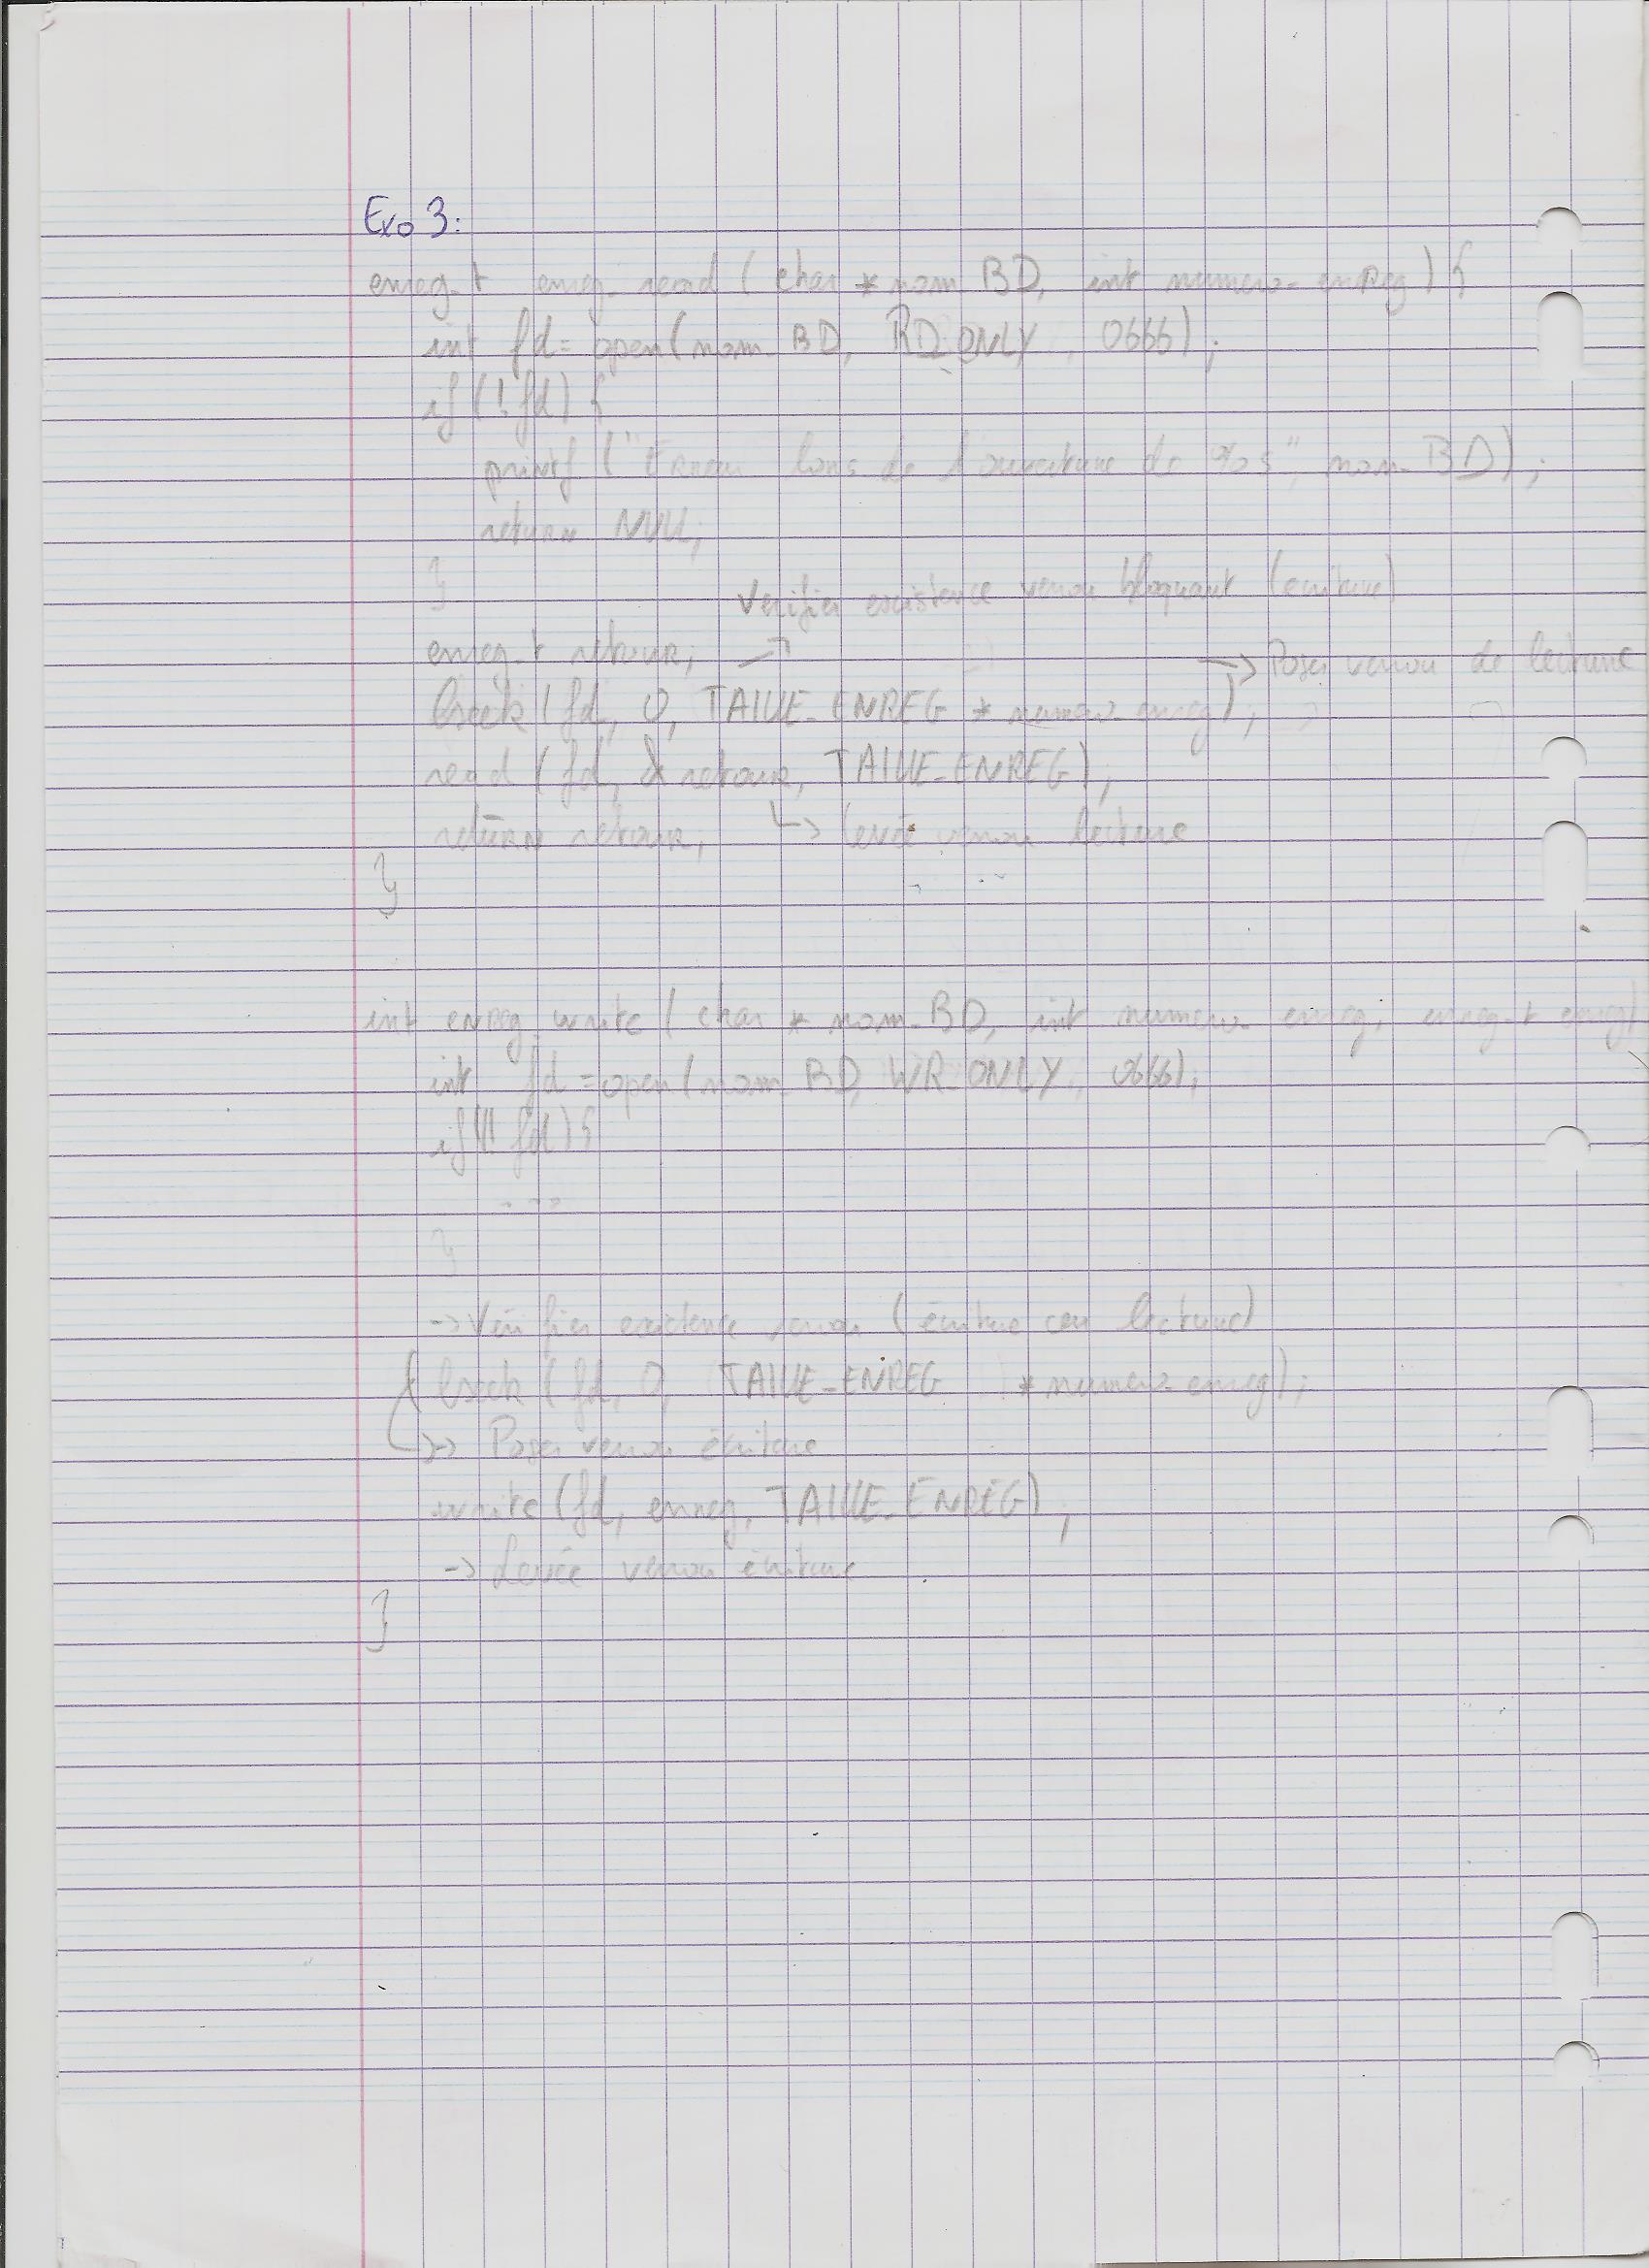 Exo 3:
enreg_t enreg_read (char *nom_BD, int numero_enreg) {
int fd = open(nom_BD, RD_ONLY, 0666);
if (!fd) {
printf ("Erreur lors de l'ouverture de %s", nom_BD);
return NULL;
}
Verifier existence verrou bloquant (ecriture)
enreg_t retour; →
→ Poser verrou de lecture
lseek (fd, 0, TAILLE_ENREG * numero_enreg);
read (fd, &retour, TAILLE_ENREG);
return retour; ↳ levée verrou lecture
}
int enreg_write (char *nom_BD, int numero_enreg, enreg_t enreg)
int fd = open(nom_BD, WR_ONLY, 0666);
if (! fd) {
....
}
→ Vérifier existence verrou (écriture ou lecture)
lseek (fd, 0, TAILLE_ENREG * numero_enreg);
→ Poser verrou écriture
write (fd, enreg, TAILLE_ENREG);
→ Levée verrou écriture
}